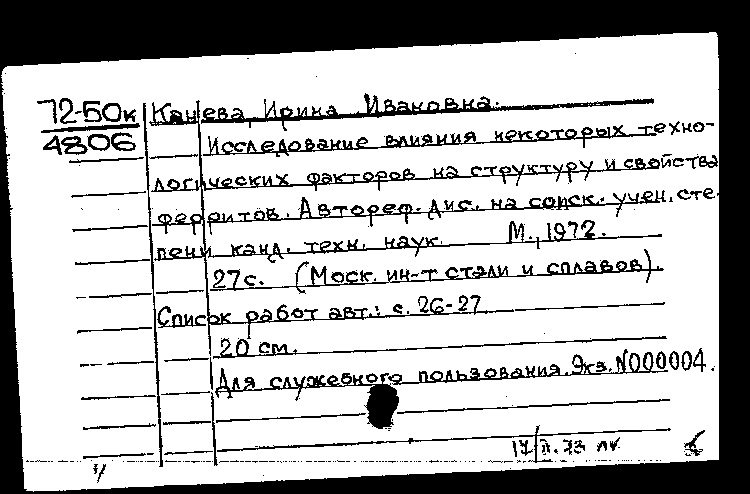 72-50к Канева, Ирина Ивановна.
4806 Исследование влияния некоторых техно-
логических факторов на структуру и свойства
ферритов. Автореф. дис. на соиск. учен. сте-
пени канд. техн. наук. М., 1972.
27с. (Моск. ин-т стали и сплавов).
Список работ авт.: с. 26-27
20 см.
Для служебного пользования. Экз. N000004.